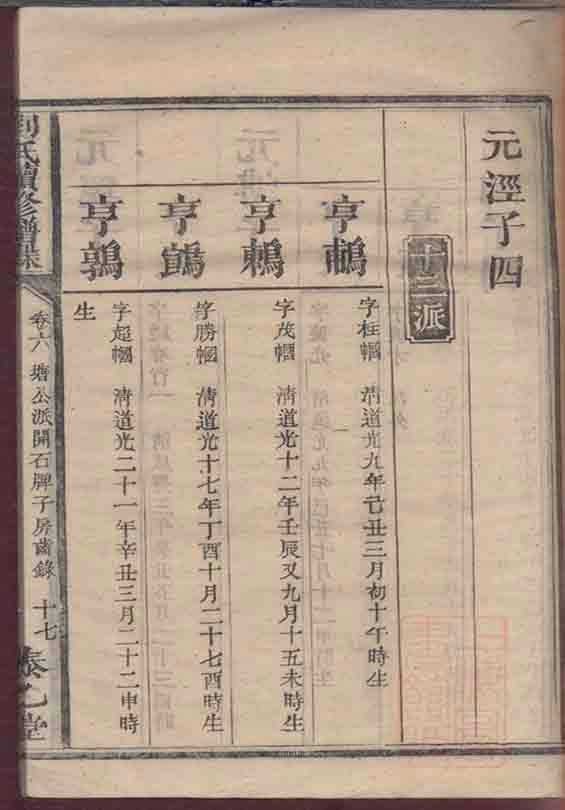 元涇子四
十二派
亨鷛
字柱幗 清道光九年己丑三月初十午時生
亨鶒
字茂幗 清道光十二年壬辰又九月十五未時生
亨鴿
字勝幗 清道光十七年丁酉十月二十七酉時生
亨鶉
字超幗 清道光二十一年辛丑三月二十二申時
生
劉氏續修譜
卷六 塘公派開石牌子房齒錄 十七
泰乙堂